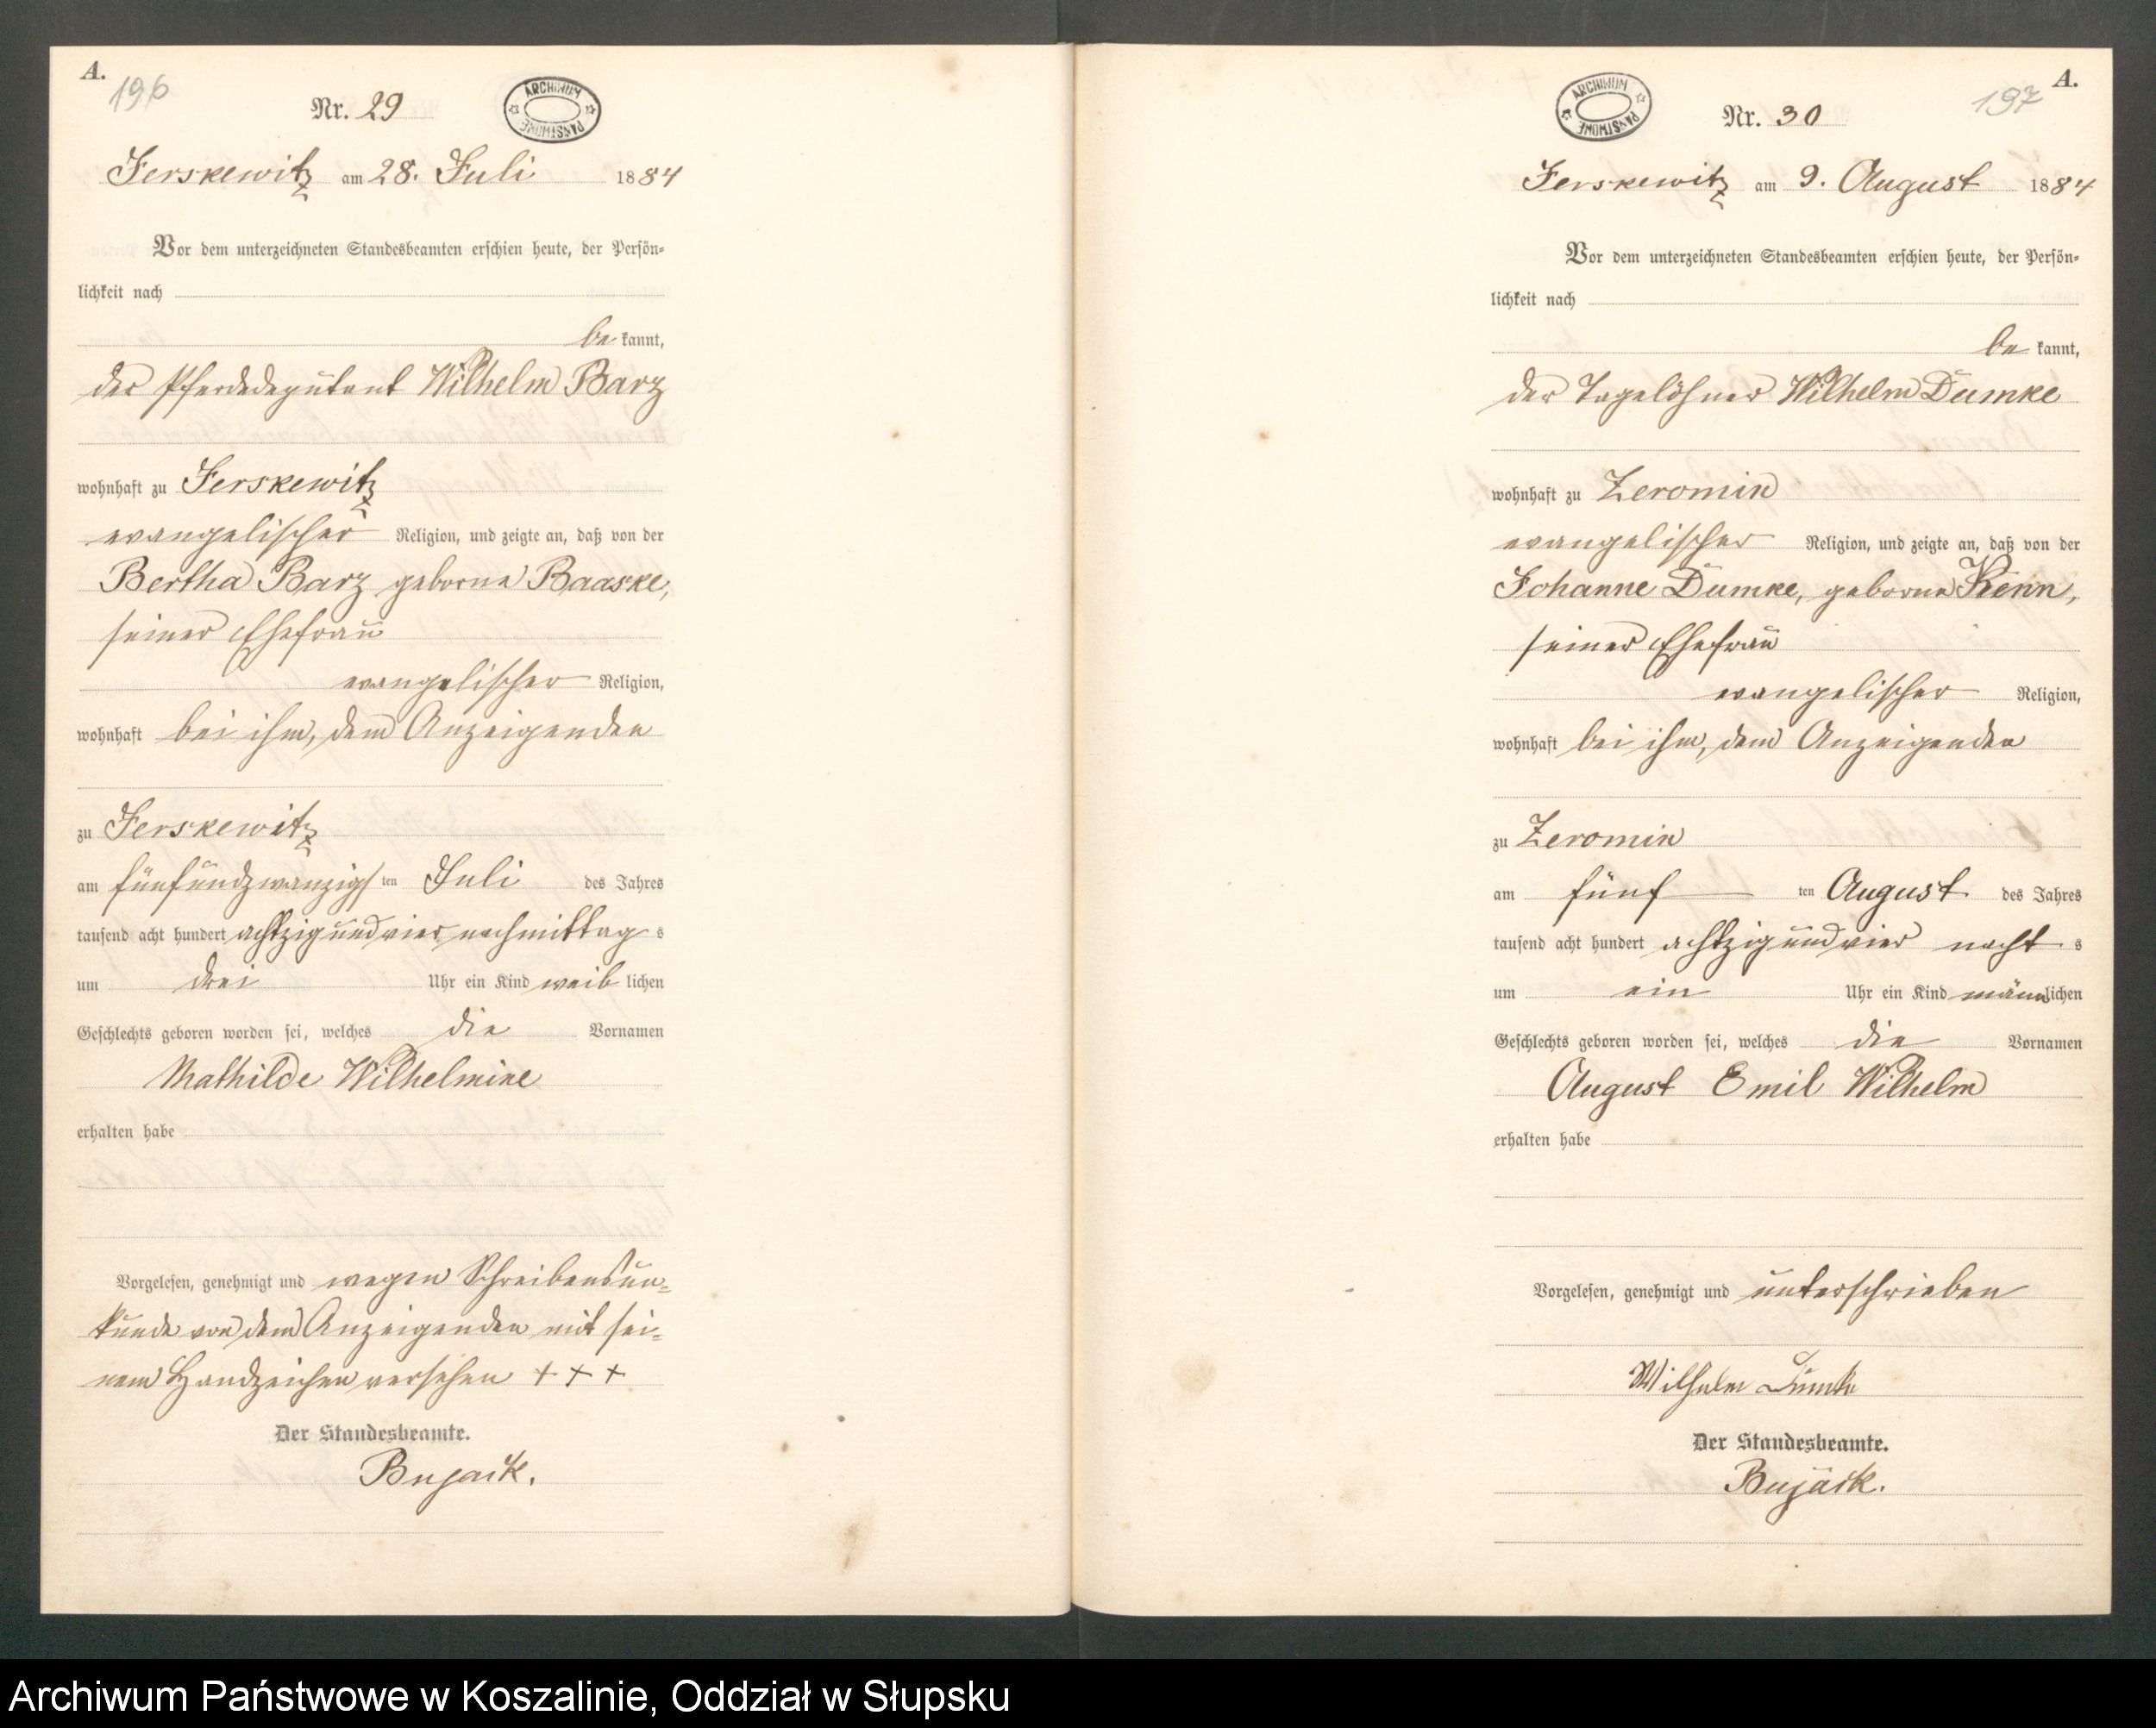 A.
196
Nr. 29
ARCHIWUM PAŃSTWOWE
Jerskewitz am 28. Juli 1884
Vor dem unterzeichneten Standesbeamten erschien heute, der Persön-
lichkeit nach
be kannt,
der Pferdedeputant Wilhelm Barz
wohnhaft zu Jerskewitz
evangelischer Religion, und zeigte an, daß von der
Bertha Barz geborne Baaske,
seiner Ehefrau
evangelischer Religion,
wohnhaft bei ihm, dem Anzeigenden
zu Jerskewitz
am fünfundzwanzigs ten Juli des Jahres
tausend acht hundert achtzig und vier, nachmittag s
um drei Uhr ein Kind weib lichen
Geschlechts geboren worden sei, welches die Vornamen
Mathilde Wilhelmine
erhalten habe
Vorgelesen, genehmigt und wegen Schreibensun-
kunde von dem Anzeigenden mit sei-
nem Handzeichen versehen + + +
Der Standesbeamte.
Bujack.
A.
197
ARCHIWUM PAŃSTWOWE
Nr. 30
Jerskewitz am 9. August 1884
Vor dem unterzeichneten Standesbeamten erschien heute, der Persön-
lichkeit nach
be kannt,
der Tagelöhner Wilhelm Dumke
wohnhaft zu Zeromin
evangelischer Religion, und zeigte an, daß von der
Johanne Dumke, geborne Kenn,
seiner Ehefrau
evangelischer Religion,
wohnhaft bei ihm, dem Anzeigenden
zu Zeromin
am fünf ten August des Jahres
tausend acht hundert achtzig und vier nacht s
um ein Uhr ein Kind männlichen
Geschlechts geboren worden sei, welches die Vornamen
August Emil Wilhelm
erhalten habe
Vorgelesen, genehmigt und unterschrieben
Wilhelm Dumke
Der Standesbeamte.
Bujack.
Archiwum Państwowe w Koszalinie, Oddział w Słupsku